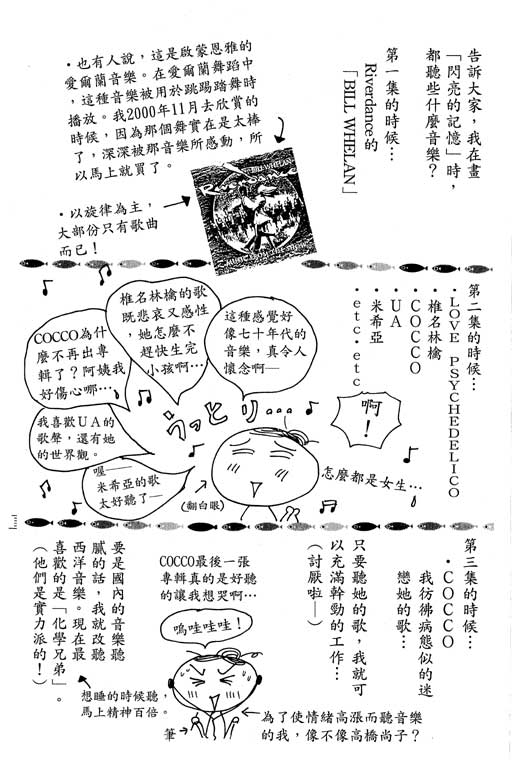 告訴大家，我在畫
「閃亮的記憶」時，
都聽些什麼音樂？
第一集的時候…
Riverdance的
「BILL WHELAN」
・也有人說，這是啟蒙恩雅的
愛爾蘭音樂。在愛爾蘭舞蹈中
，這種音樂被用於跳踢踏舞時
播放。我2000年11月去欣賞的
時候，因為那個舞實在是太棒
了，深深被那音樂所感動，所
以馬上就買了。
BILL WHELAN
・以旋律為主，
大部份只有歌曲
而已！
第二集的時候…
・LOVE PSYCHEDELICO
・椎名林檎
・COCCO
・UA
・米希亞
・etc・etc
啊！
這種感覺好
像七十年代的
音樂，真令人
懷念啊—
椎名林檎的歌
既悲哀又感性
，她怎麼不
趕快生完
小孩啊…
COCCO為什
麼不再出專
輯了？阿姨我
好傷心哪…
我喜歡UA的
歌聲，還有她
的世界觀。
喔—
米希亞的歌
太好聽了—
うっとり…
（翻白眼）
怎麼都是女生…
第三集的時候…
・COCCO
我彷彿病態似的迷
戀她的歌…
只要聽她的歌，我就可
以充滿幹勁的工作…
（討厭啦—）
COCCO最後一張
專輯真的是好聽
的讓我想哭啊…
嗚哇哇哇！
筆→
為了使情緒高漲而聽音樂
的我，像不像高橋尚子？
要是國內的音樂聽
膩的話，我就改聽
西洋音樂。現在最
喜歡的是「化學兄弟」。
（他們是實力派的！）
想睡的時候聽，
馬上精神百倍。